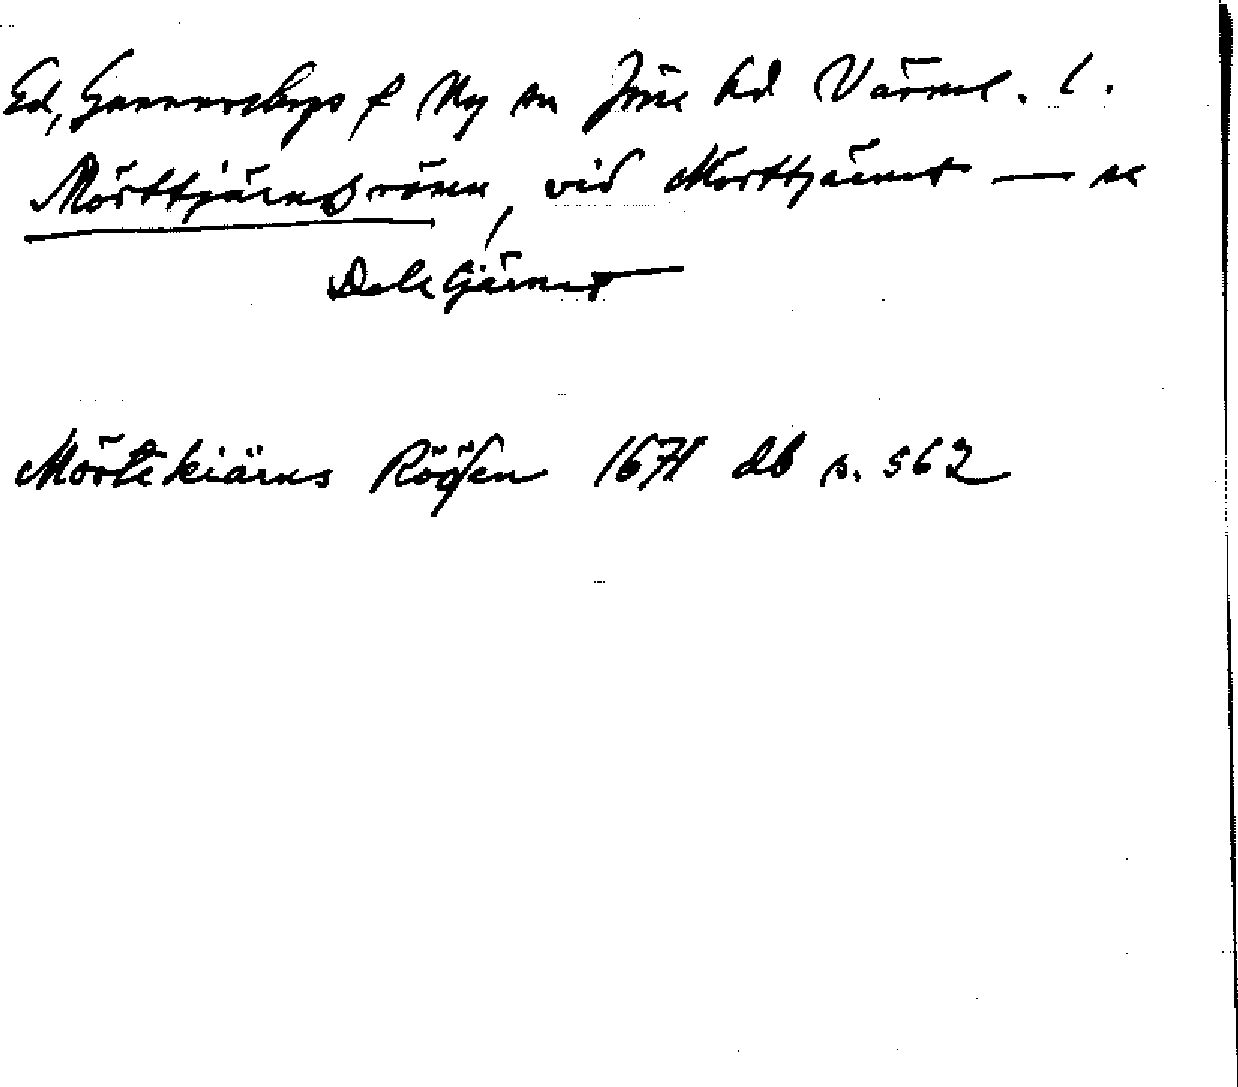 Ed, Gunnarskogs f Ny sn Jösse hd Värml. l.
Mörttjärnsrösen, vid Mörttjärnet — se
Deletjärnet
Mörtekiärns Röösen 1671 db s. 562